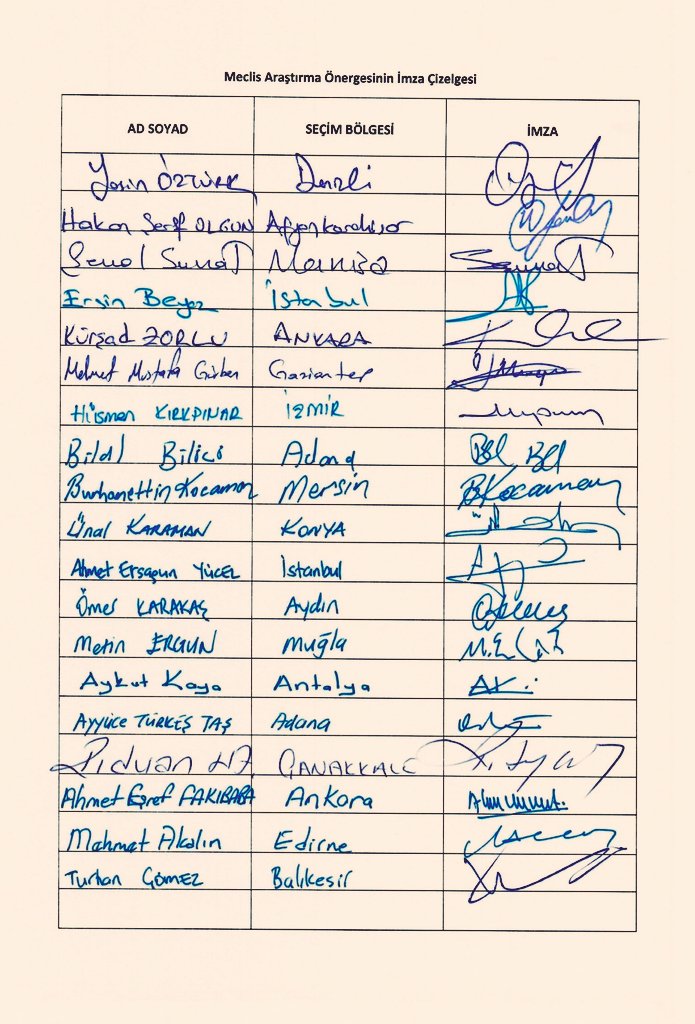 Meclis Araştırma Önergesinin İmza Çizelgesi
AD SOYAD SEÇİM BÖLGESİ İMZA
Yasin ÖZTÜRK Denizli
Hakan Şeref OLGUN Afyonkarahisar
Şenol Sunat Manisa Sunat
Ersin Beyaz İstanbul
Kürşad ZORLU ANKARA
Mehmet Mustafa Gürban Gaziantep
Hüsmen KIRKPINAR İZMİR
Bilal Bilici Adana
Burhanettin Kocamaz Mersin BKocamaz
Ünal KARAMAN KONYA
Ahmet Ersagun YÜCEL İstanbul
Ömer KARAKAŞ Aydın
Metin ERGUN Muğla
Aykut Kaya Antalya
Ayyüce TÜRKEŞ TAŞ Adana
Rıdvan UZ ÇANAKKALE
Ahmet Eşref FAKIBABA Ankara
Mahmat Akalın Edirne
Turhan GÖMEZ Balıkesir